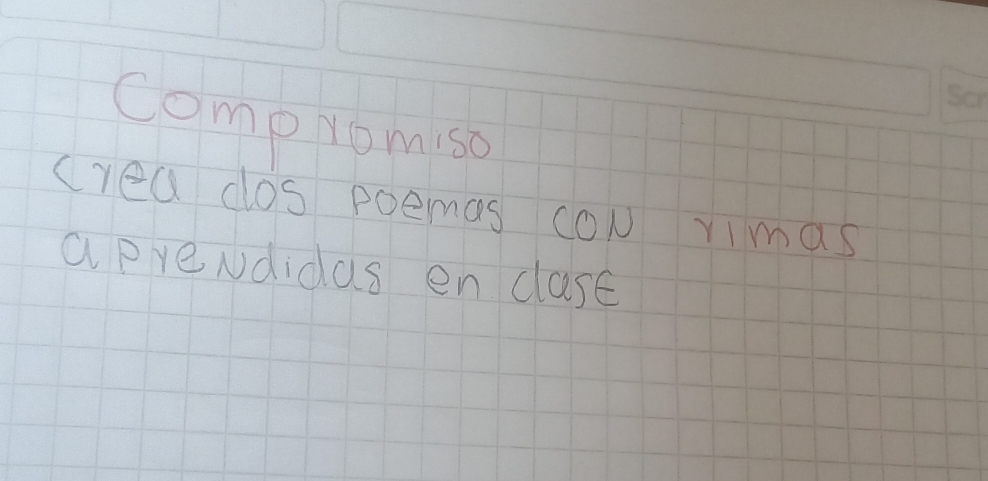 Compromiso
crea dos poemas con rimas
aprendidas en clase